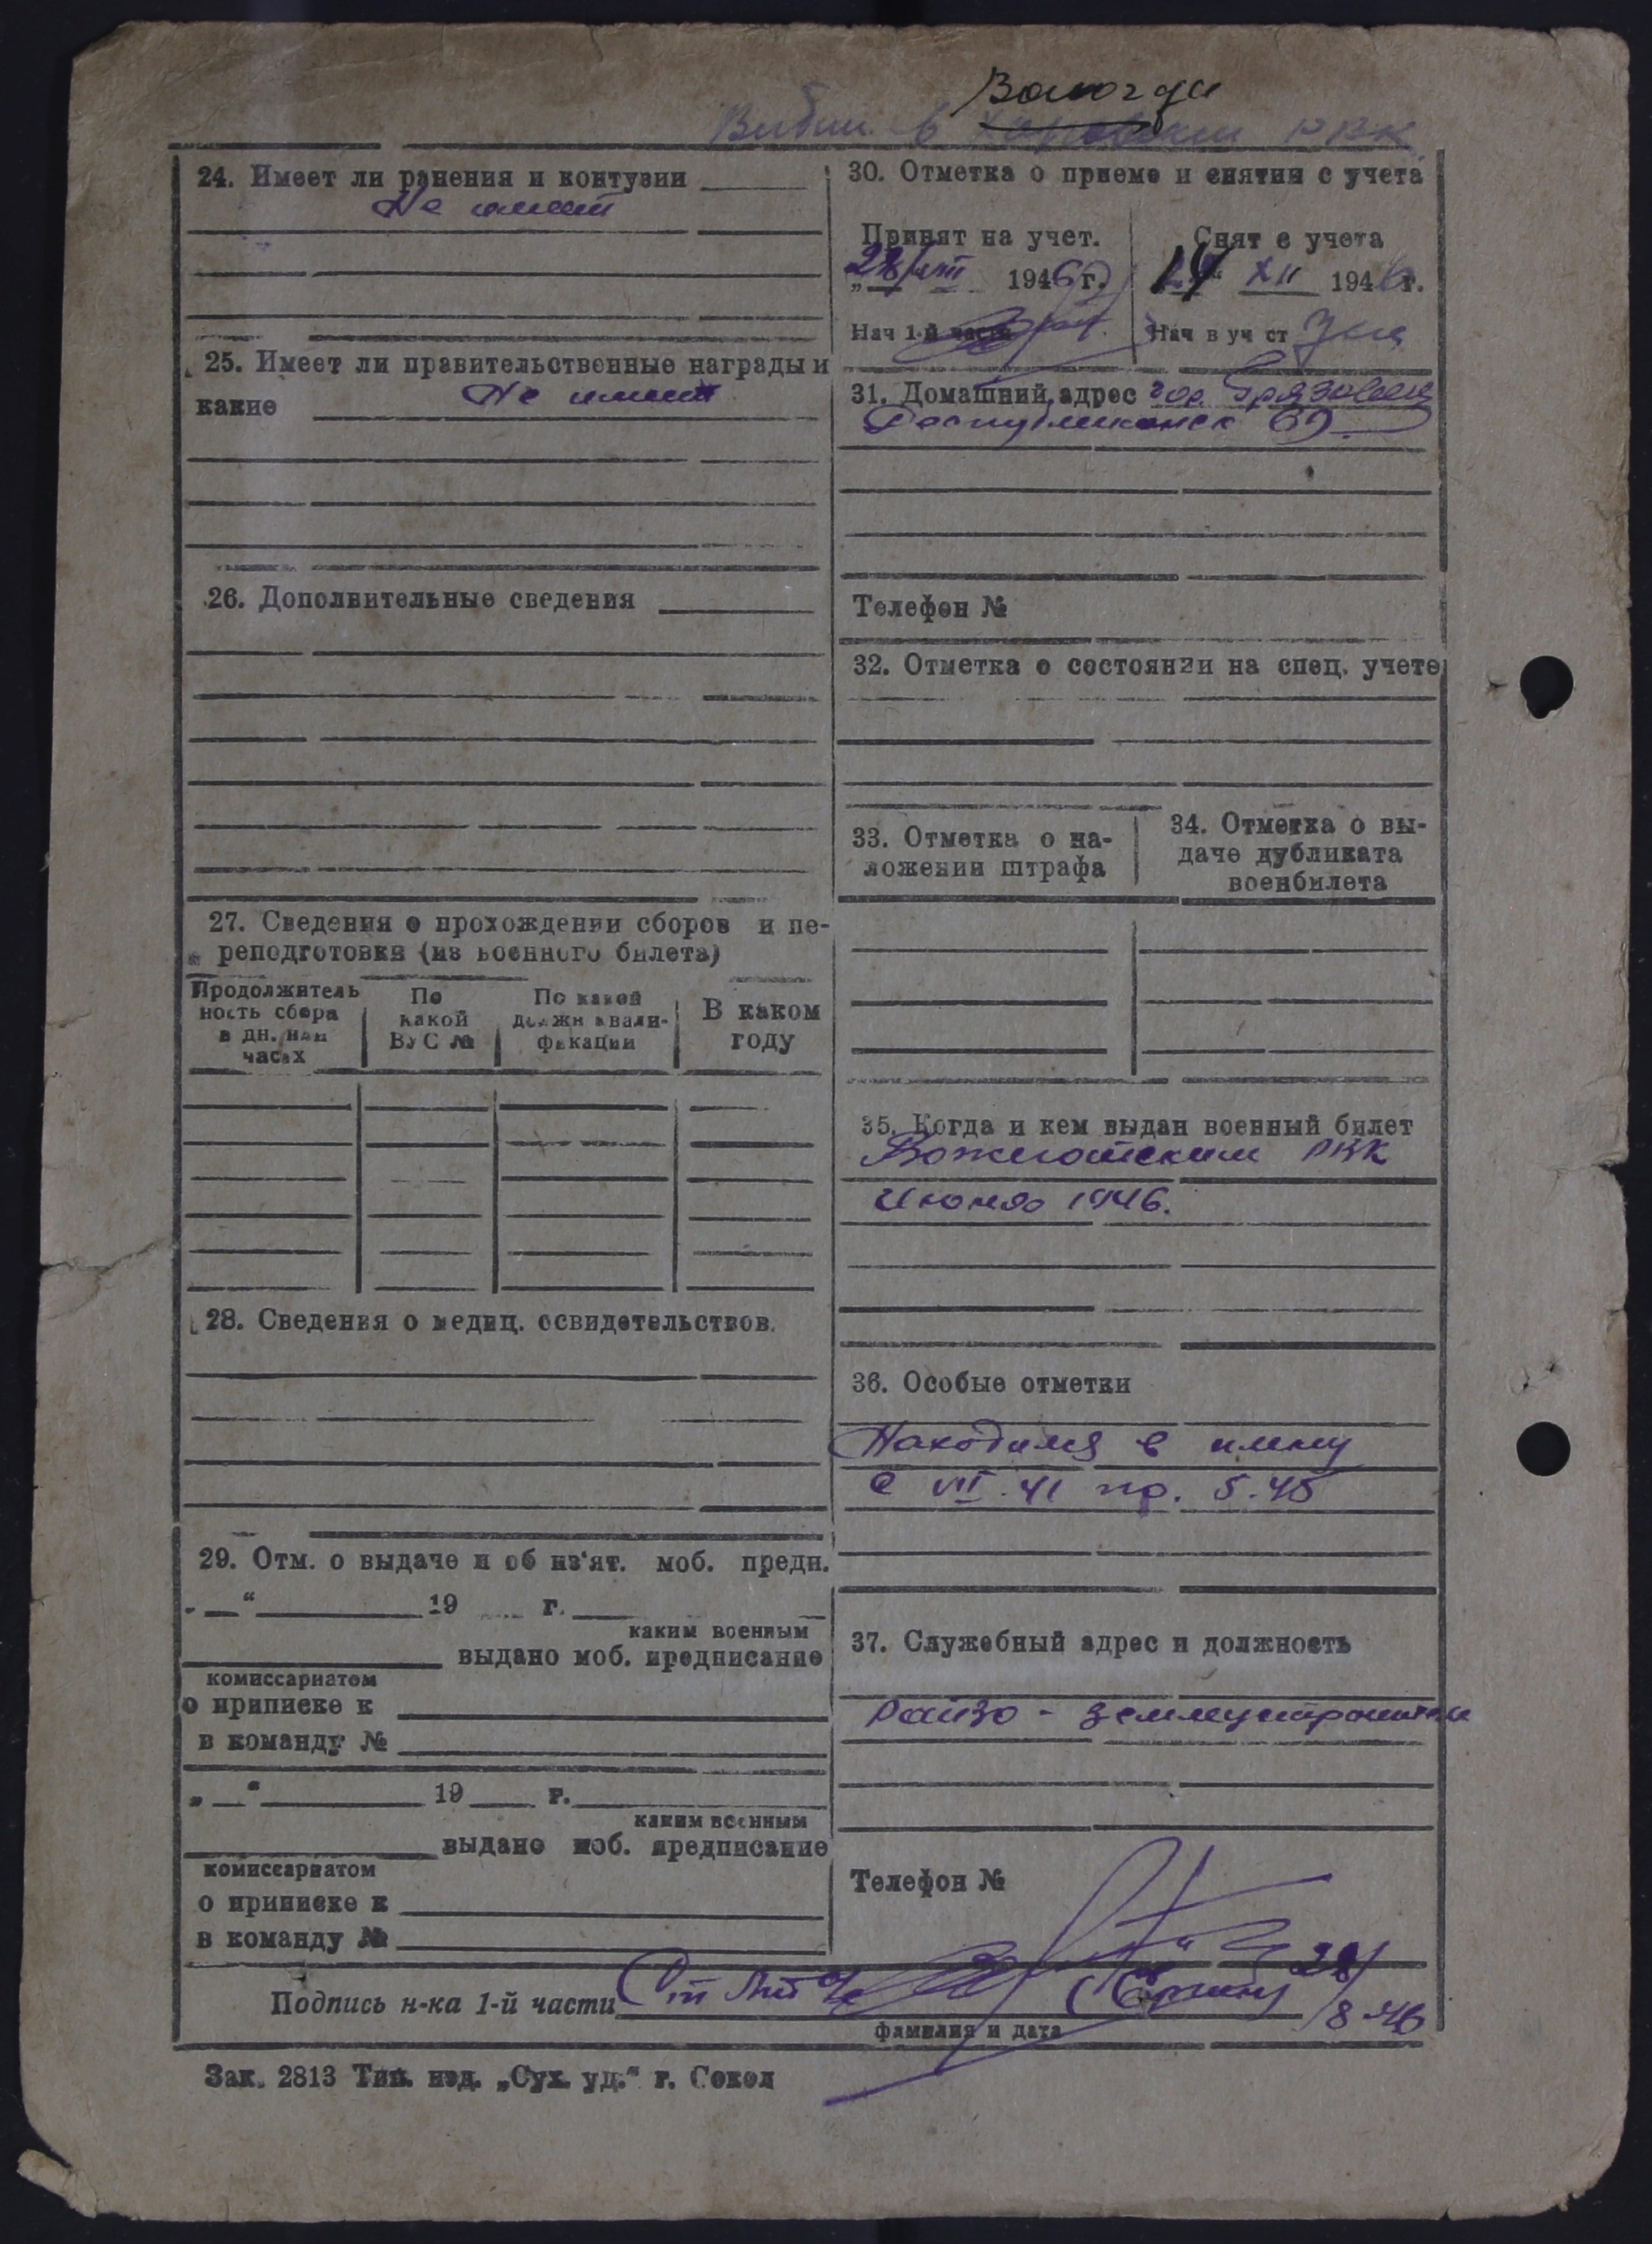 Вологда
Выбыл в РВК
24. Имеет ли ранения и контузии
Не имеет
25. Имеет ли правительственные награды и
какие Не имеет
26. Дополнительные сведения
27. Сведения о прохождении сборов и пе-
реподготовки (из военного билета)
Продолжитель
ность сбора
в дн. или
часах
По
какой
ВУС №
По какой
должн квали-
фикации
В каком
году
28. Сведения о медиц. освидетельствов.
29. Отм. о выдаче и об из'ят. моб. предп.
„ “ 19 г.
каким военным
выдано моб. предписание
комиссариатом
о приписке к
в команду №
„ “ 19 г.
каким военным
выдано моб. предписание
комиссариатом
о приписке к
в команду №
30. Отметка о приеме и снятии с учета
Принят на учет.
„28/VIII 1946 г.
Нач 1-й части
Снят с учета
XII 1946 г.
Нач в уч ст
31. Домашний адрес гор Грязовец
Республиканск 69
Телефон №
32. Отметка о состоянии на спец. учете
33. Отметка о на-
ложении штрафа
34. Отметка о вы-
даче дубликата
военбилета
35. Когда и кем выдан военный билет
Вожегодским РВК
Июнь 1946.
36. Особые отметки
Находился в плену
с VII.41 по. 5.45
37. Служебный адрес и должность
Райзо - землеустроитель
Телефон №
Подпись н-ка 1-й части Ст л-т 28/
/8-46
фамилия и дата
Зак. 2813 Тип. изд. „Сух. уд.“ г. Сокол